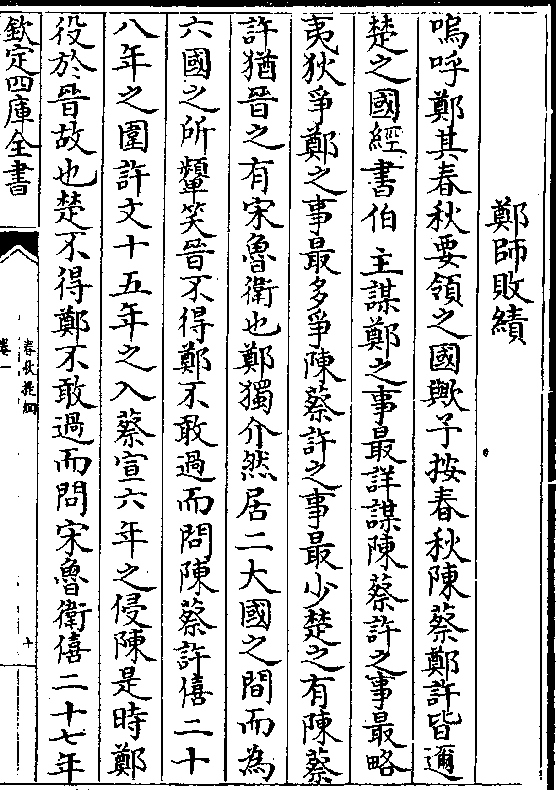 鄭師敗績
嗚呼鄭其春秋要領之國歟予按春秋陳蔡鄭許皆邇
楚之國經書伯主謀鄭之事最詳謀陳蔡許之事最略
夷狄爭鄭之事最多爭陳蔡許之事最少楚之有陳蔡
許猶晉之有宋魯衛也鄭獨介然居二大國之間而為
六國之所顰笑晉不得鄭不敢過而問陳蔡許僖二十
八年之圍許文十五年之入蔡宣六年之侵陳是時鄭
役於晉故也楚不得鄭不敢過而問宋魯衛僖二十七年
欽定四庫全書
春秋提綱
卷一
十